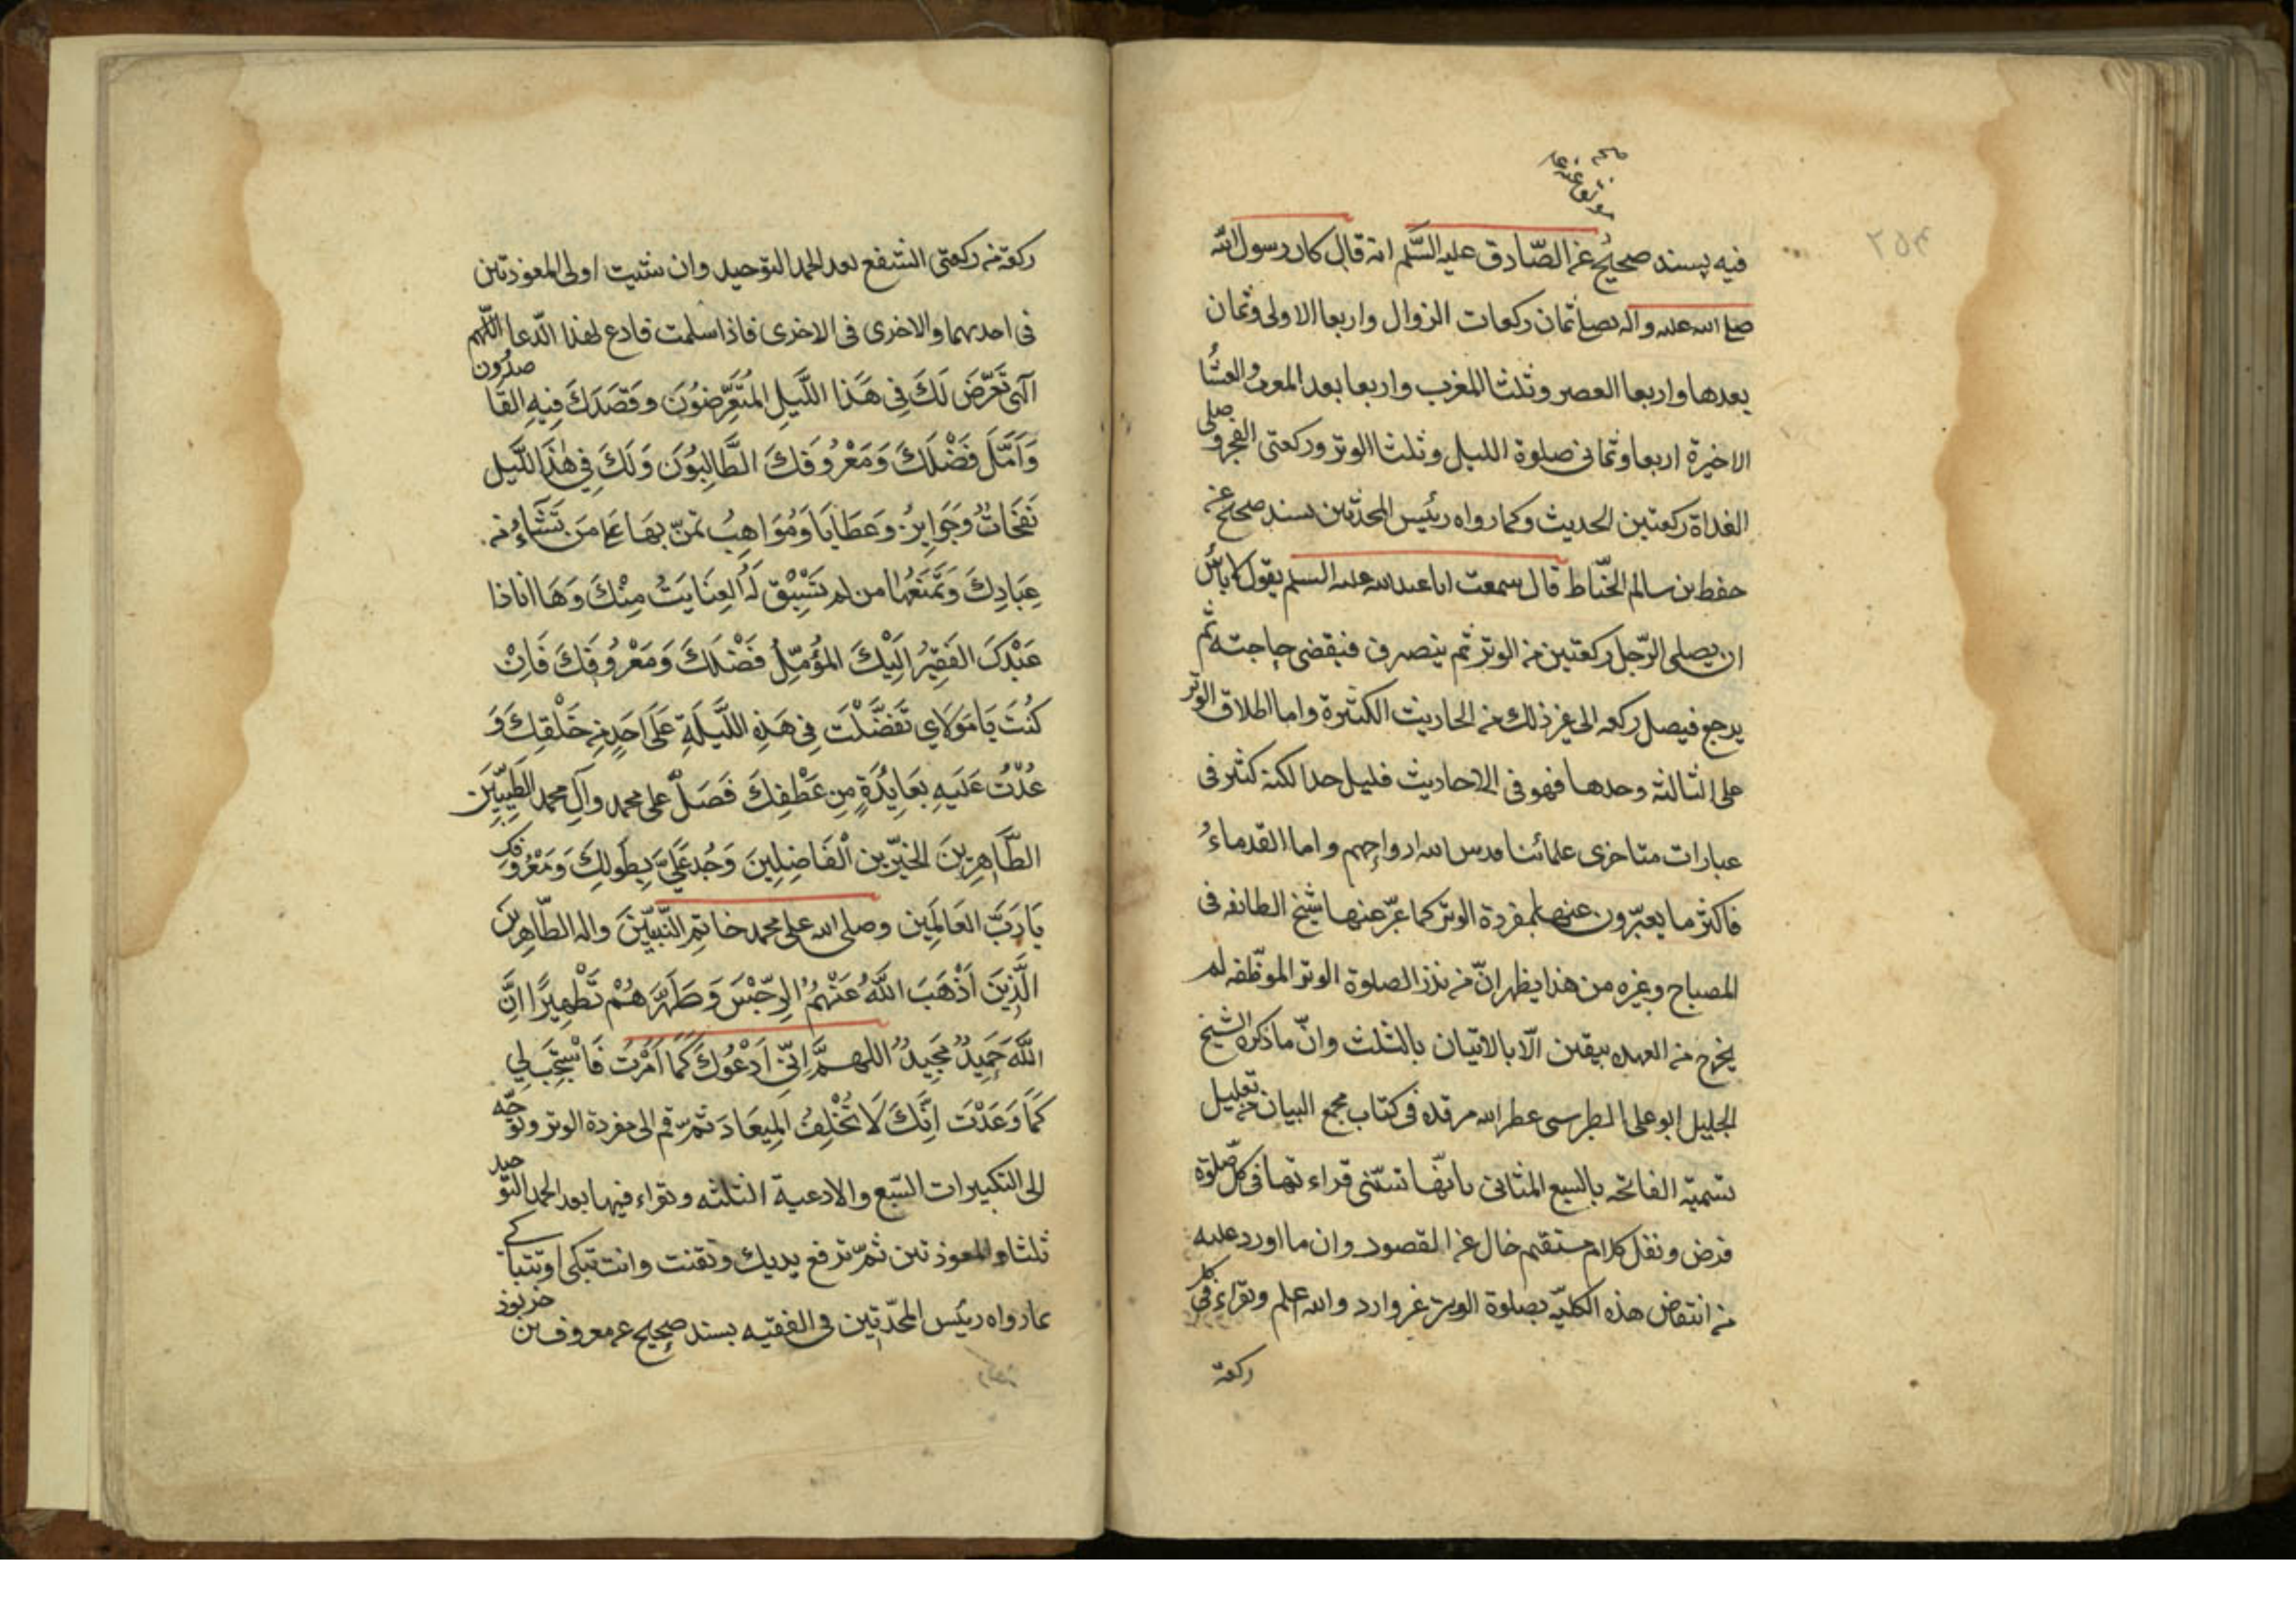 ۲۵۴
فيه بسند صحيح عن الصّادق عليه السَّلم انه قال كان رسول الله
صلى الله عليه واله يصلى ثمان ركعات الزوال واربعا الاولى وثمان
بعدها واربعا العصر وثلثا المغرب واربعا بعد المغرب والعشا
الاخيرة اربعا وثمانى صلوة الليل وثلثا الوتر وركعتى الفجر وصلى
الغداة ركعتين الحديث وكما رواه رئيس المحدّثين بسند صحيح عن
حفط بن سالم الحنّاط قال سمعت ابا عبد الله عليه السلم يقول لا باس
ان يصلى الرّجل ركعتين من الوتر ثم ينصرف فيقضى حاجته ثم
يرجع فيصل ركعه الى غير ذلك من الحاديث الكثيرة واما اطلاق الوتر
على الثالثه وحدها فهو فى الاحاديث قليل جدا لكنه كثير فى
عبارات متاخرى علمائنا قدس الله ارواحهم واما القدماءُ
فاكثر ما يعبّرون عنها بمفردة الوتر كما عبّر عنها شيخ الطائفه فى
المصباح وغيره من هذا يظهر انّ من نذر الصلوة الوتر الموظّفه لم
يخرج من العهده بيقين الّا بالاتيان بالثلث وانّ ما ذكره الشيخ
الجليل ابو على الطبرسى عطر الله مرقده فى كتاب مجمع البيان من تعليل
تسميّه الفاتحه بالسبع المثانى بانّها تستّنى قراءتها فى كل صلوة
فرض ونفل كلام مستقيم خال عن القصود وان ما اورد عليه
من انتقاض هذه الكليّه بصلوة الوتر غير وارد والله اعلم وتقراء فى كل
ركعة
ركعة من ركعتى الشفع بعد الحمد التوحيد وان شئيت اولى المعوذتين
فى احديهما والاخرى فى الاخرى فاذا سلمت فادع لهذا الدّعا اللّهم
آلهى تَعَرَّضَ لَكَ فِى هَذا اللَّيلِ المُتَعَرِّضُونَ وَقَصَدَكَ فِيهِ القَاصدُون
وَاَمَّلَ فَضْلَكَ وَمَعْرُوفَكَ الطَّالِبُونَ وَلَكَ فِى هٰذَا اللَّيلِ
نَفَحَاتٌ وَجَوَايِزُ وَعَطَايَا وَمُوَاهِبُ تمنّ بِهَا عَلى مَن تَشَاءُ من
عِبَادِكَ وَتَمْنَعُهَا من لم تَسْبِقْ لَهُ العِنَايَتُ مِنْكَ وَهَا انا ذا
عَبْدَكَ الفَقِيرُ اِلَيْكَ المُؤَمِّلُ فَضْلَكَ وَمَعْرُوفَكَ فَاِنْ
كُنْتَ يَا مَوْلَاي تَفَضَّلْتَ فِى هَذِهِ اللَّيْلَةِ عَلَى اَحَدٍ مِن خَلْقِكَ وَ
عُدْتَ عَلَيهِ بِعَايِدَةٍ مِن عَطْفِكَ فَصَلِّ على محمد وآلِ محمد الطَيِّبِينَ
الطَّاهِرِينَ الخيّرين الْفَاضِلِينَ وَجُد عَلَيَّ بِطَولِكَ وَمَعْرُوفِكَ
يَا رَبَّ العَالَمِين وصلى الله على محمد خاتمِ النَّبِيّينَ واله الطّاهِرينَ
الَّذِينَ اَذْهَبَ اللَّهُ عَنْهُمُ الرِّجْسَ وَطَهَّرَهُمْ تَطْهِيرًا انَّ
اللَّهَ حَمِيدٌ مَجِيدٌ اللهمَّ اِنّى اَدْعُوكَ كَمَا اَمَرْتَ فَاسْتَجِبْ لِي
كَمَا وَعَدْتَ اِنَّكَ لَا تُخْلِفُ المِيعَادَ ثمّ قم الى مفردة الوتر وتوجّه
الى التكبيرات السّبع والادعية الثلثه وتقراء فيها بعد الحمد التوحيد
ثلثا والمعوذتين ثمّ ترفع يديك وتقنت وانت تبكى او تتباكى
عاد رواه رئيس المحدّثين فى الفقيه بسند صحيح عن معروف بن خربوذ